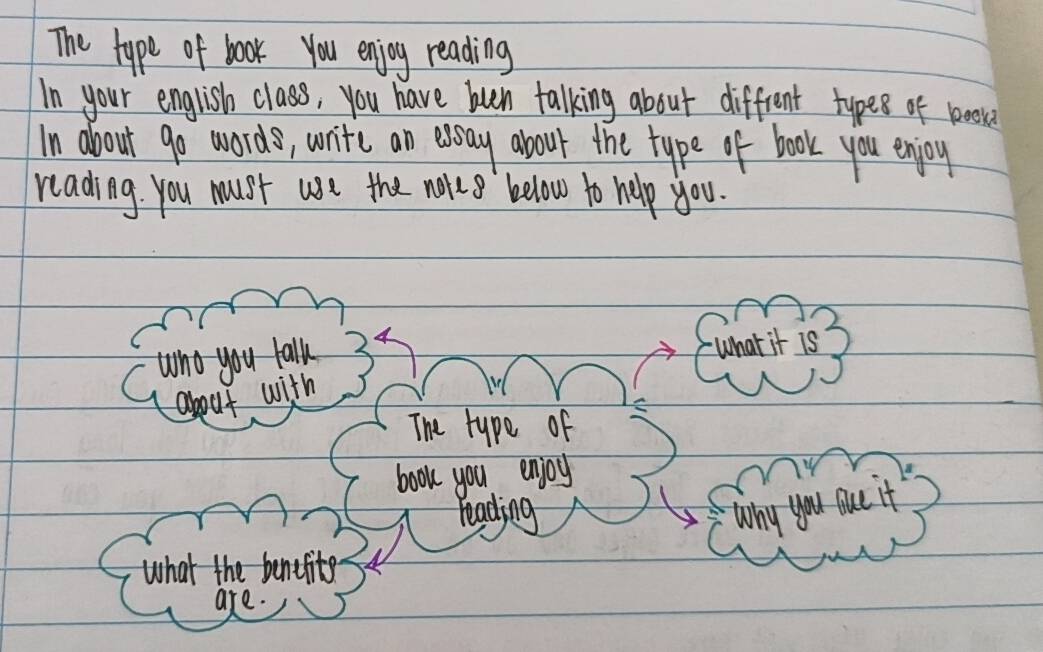 The type of book you enjoy reading
In your english class, you have been talking about diffrent types of books
In about 90 words, write an essay about the type of book you enjoy
reading. you must use the notes below to help you.
who you talk
about with
what it is
The type of
book you enjoy
reading
why you like it
what the benefits
are.